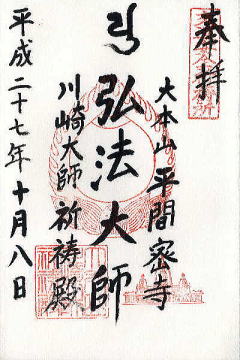 奉拝
大本山 平間寺
弘法大師
川崎大師 祈祷殿
平成二十七年十月八日